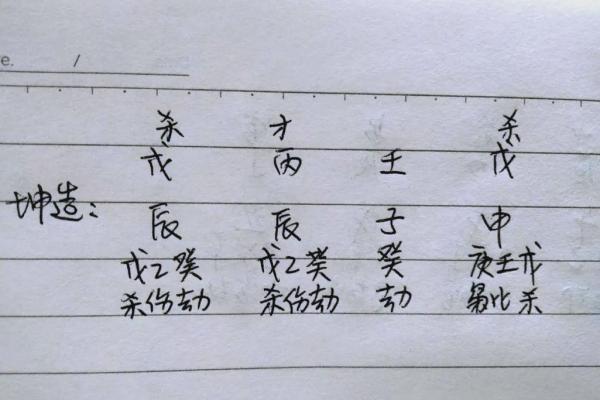 e. /
杀 才 杀
戊 丙 壬 戊
坤造： 辰 辰 子 申
戊乙癸 戊乙癸 癸 庚壬戊
杀伤劫 杀伤劫 劫 枭比杀